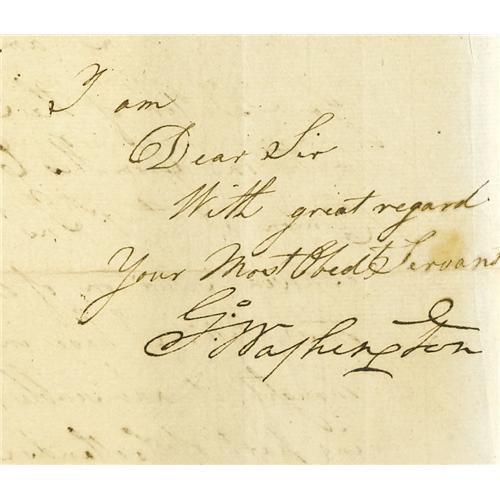 I am
Dear Sir
With great regard
Your Most Obedt Servant
Go: Washington